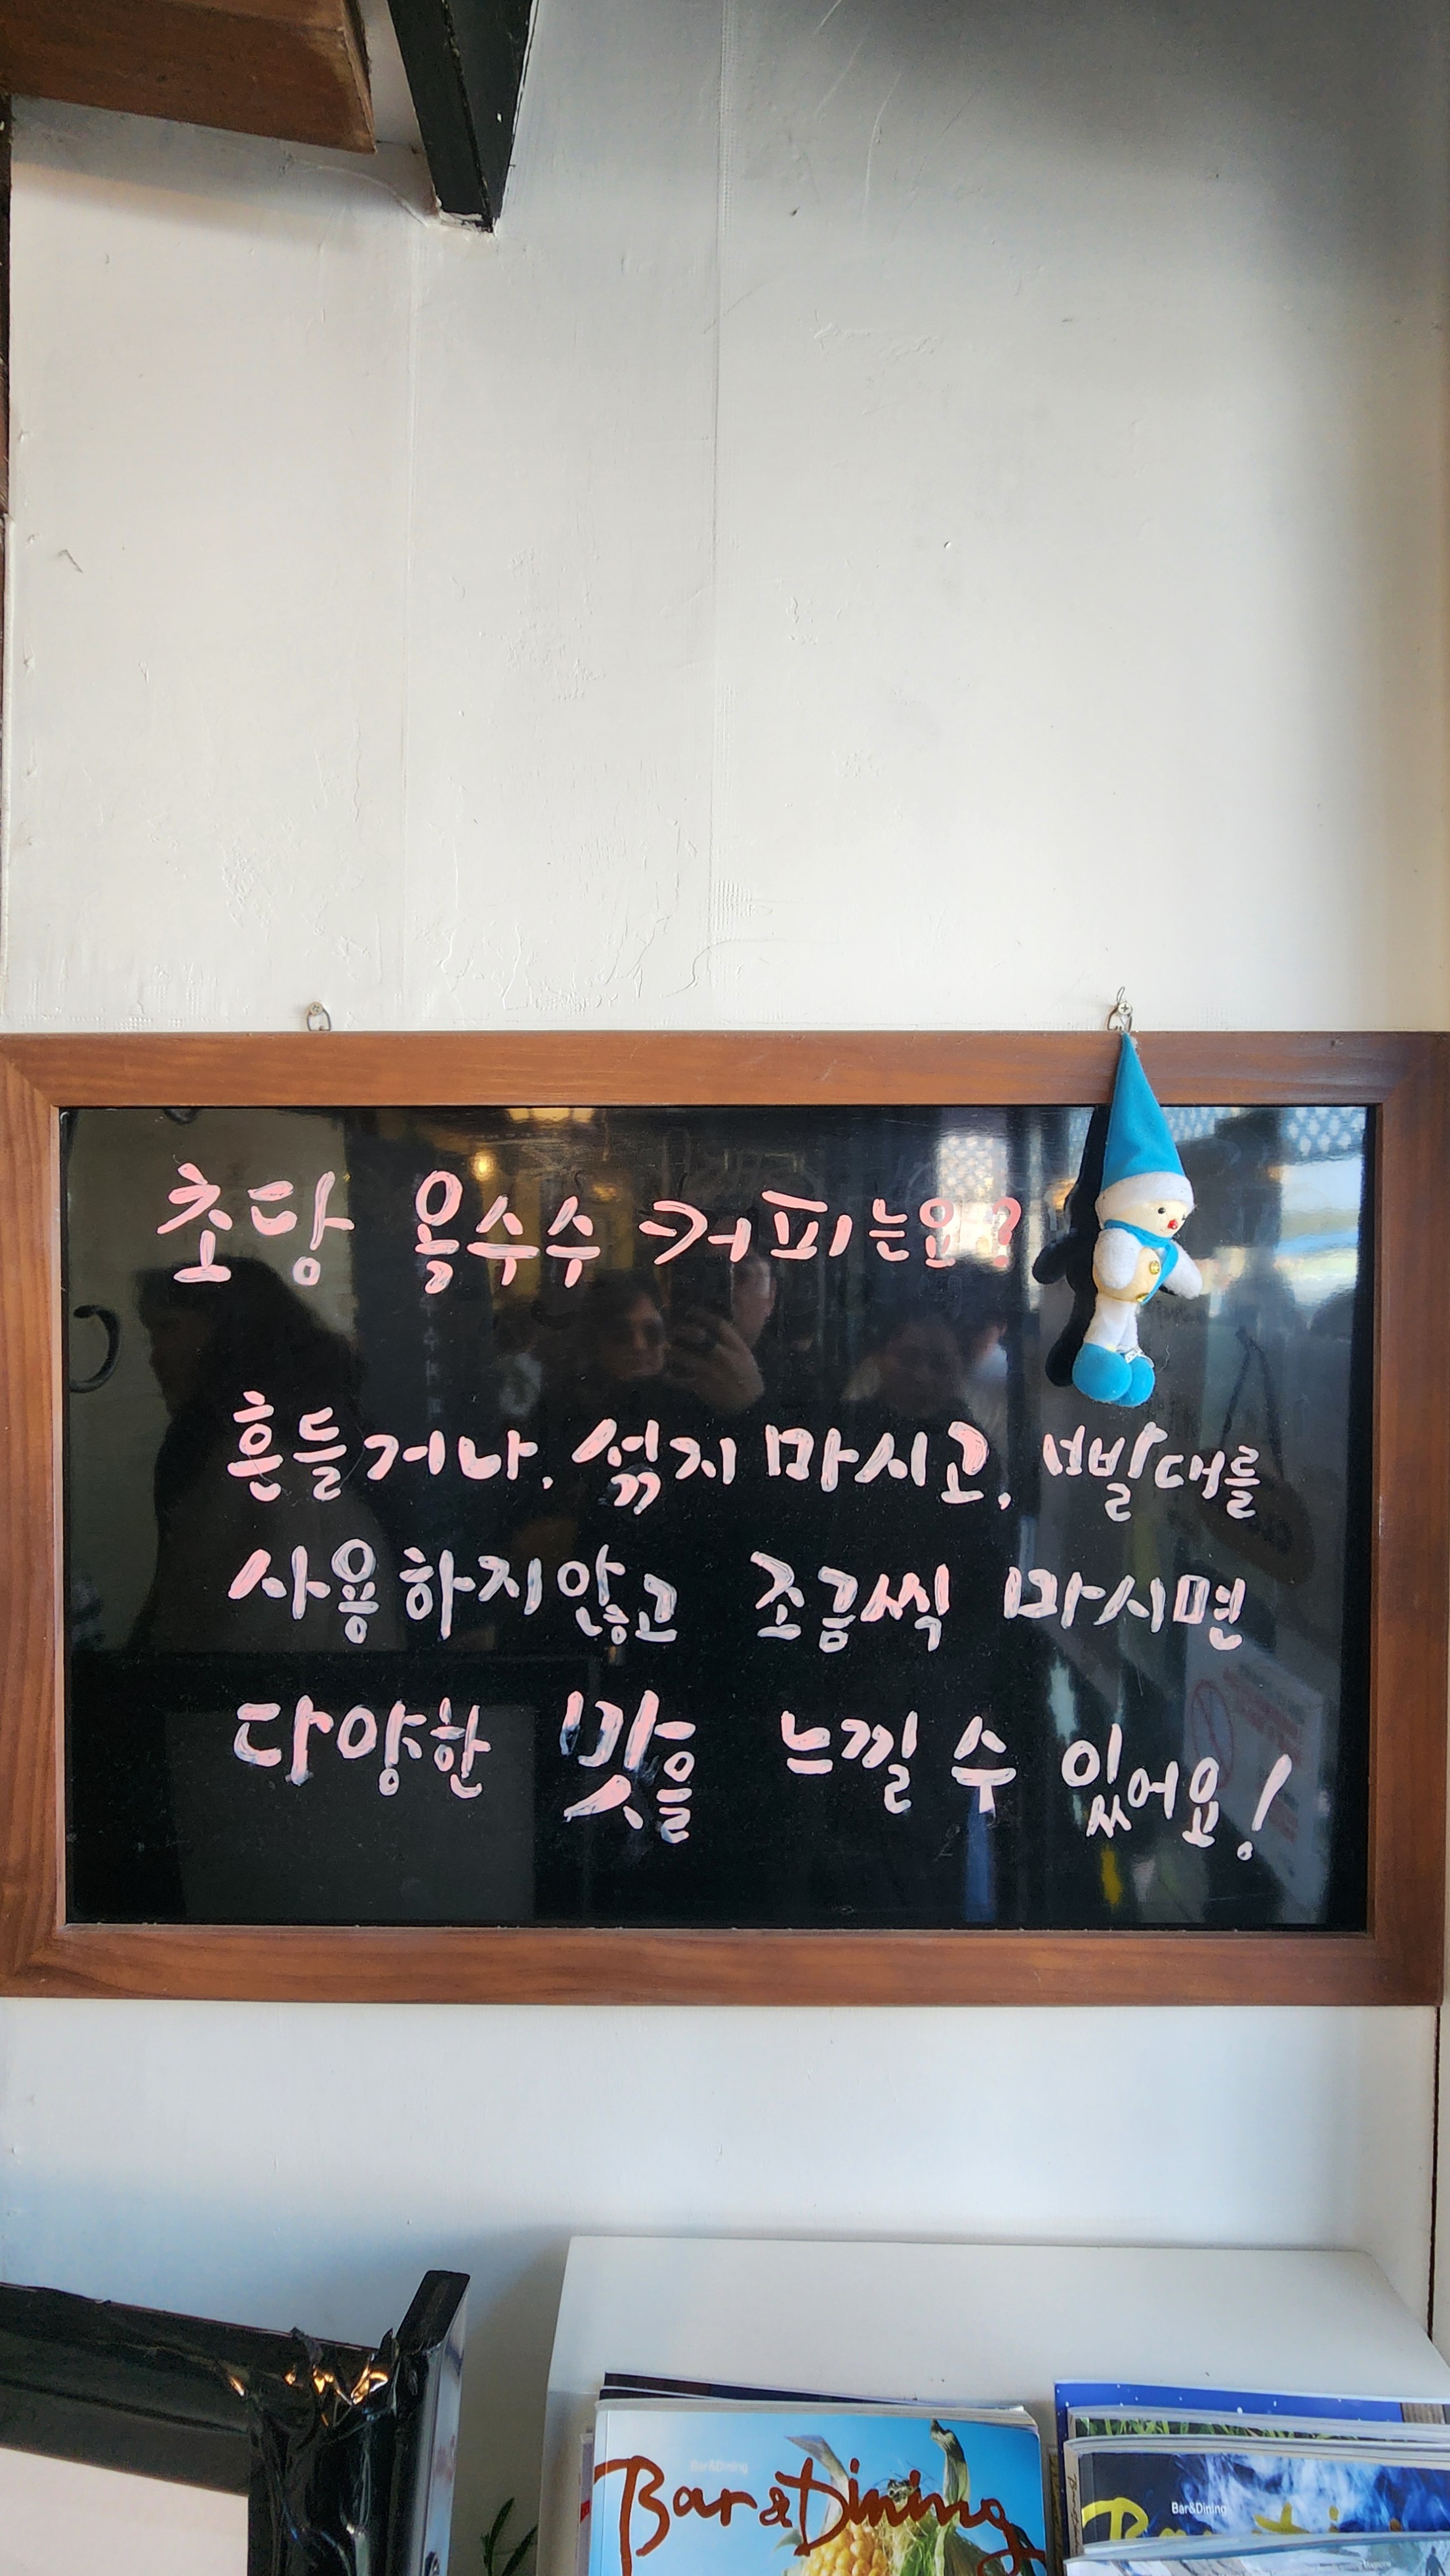 초당 옥수수 커피는요?
흔들거나, 섞지 마시고, 빨대를
사용하지않고 조금씩 마시면
다양한 맛을 느낄 수 있어요!
Bar&Dining
Bar&Dining
Bar&Dining